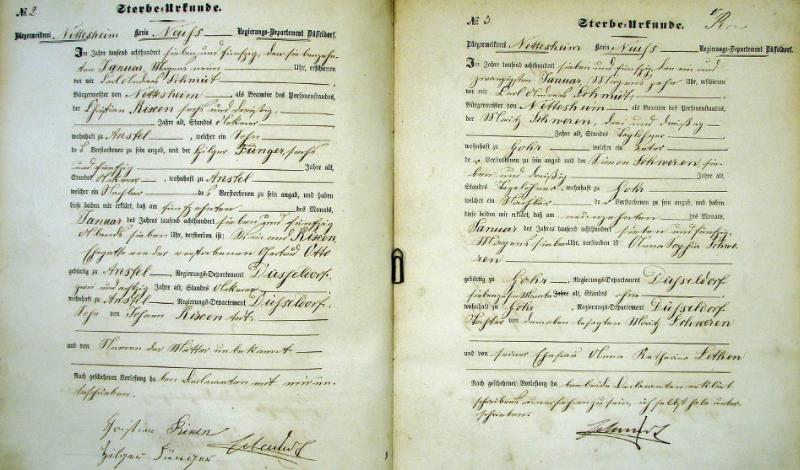 № 2
Sterbe-Urkunde.
Bürgermeisterei Nettesheim Kreis Neuß Regierungs-Departement Düsseldorf.
Im Jahre tausend achthundert sieben und fünfzig, den siebenzehn-
ten Januar Morgens neun Uhr, erschienen
vor mir Carl Schmitt
Bürgermeister von Nettesheim als Beamter des Personenstandes,
der Christian Rixen sechs und dreißig
Jahre alt, Standes Ackerer
wohnhaft zu Anstel, welcher ein Sohn
des Verstorbenen zu sein angab, und der Hilger Fünger, sechs
und fünfzig Jahre alt,
Standes Ackerer, wohnhaft zu Anstel
welcher ein Nachbar des Verstorbenen zu sein angab, und haben
diese beiden mir erklärt, daß am fünfzehnten des Monats,
Januar des Jahres tausend achthundert sieben und fünfzig
Abends sieben Uhr, verstorben ist: Rixen
Ehegatte von der verstorbenen Gertrud Otto
gebürtig zu Anstel, Regierungs-Departement Düsseldorf
zwei und achtzig Jahre alt, Standes Ackerer
wohnhaft zu Anstel, Regierungs-Departement Düsseldorf
Sohn von Johann Rixen todt
und von Namen der Mutter unbekannt
Nach geschehener Vorlesung haben Declaranten mit mir un-
terschrieben.
Christian Rixen
Hilger Fünger Schmitt
№ 3
Sterbe-Urkunde.
Bürgermeisterei Nettesheim Kreis Neuß Regierungs-Departement Düsseldorf.
Im Jahre tausend achthundert sieben und fünfzig, den ein und
zwanzigsten Januar Morgens zehn Uhr, erschienen
vor mir Carl Schmitt
Bürgermeister von Nettesheim als Beamter des Personenstandes,
der Moritz Schweren, drei und dreißig
Jahre alt, Standes Taglöhner
wohnhaft zu Gohr welcher ein Vater
der Verstorbenen zu sein angab und der Simon Schweren sie-
ben und dreißig Jahre alt,
Standes Taglöhner, wohnhaft zu Gohr
welcher ein Nachbar der Verstorbenen zu sein angab, und haben
diese beiden mir erklärt, daß am neunzehnten des Monats,
Januar des Jahres tausend achthundert sieben und fünfzig
Morgens sieben Uhr, verstorben ist: Anna Sophia Schwe-
ren
gebürtig zu Gohr, Regierungs-Departement Düsseldorf
siebenzehn Monate Jahre alt, Standes ohne
wohnhaft zu Gohr, Regierungs-Departement Düsseldorf
Tochter von demselben besagten Moritz Schweren
und von seiner Ehefrau Anna Katharina
Nach geschehener Vorlesung haben beide Declaranten erklärt
schreibens unerfahren zu sein, ich selbst habe unter-
schrieben.
Schmitt